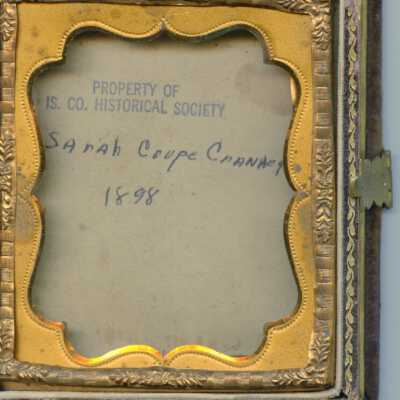 PROPERTY OF
IS. CO. HISTORICAL SOCIETY
Sarah Coupe Cranney
1898